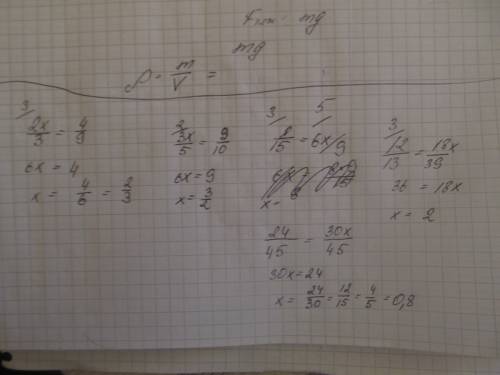 mg
mg
ρ = m/V =
3/ 2x/3 = 4/9
6x = 4
x = 4/6 = 2/3
2 3x/5 = 9/10
6x = 9
x = 3/2
3/ 5/
8/15 = 6x/9
x =
24/45 = 30x/45
30x = 24
x = 24/30 = 12/15 = 4/5 = 0,8
3/ 12/13 = 18x/39
36 = 18x
x = 2